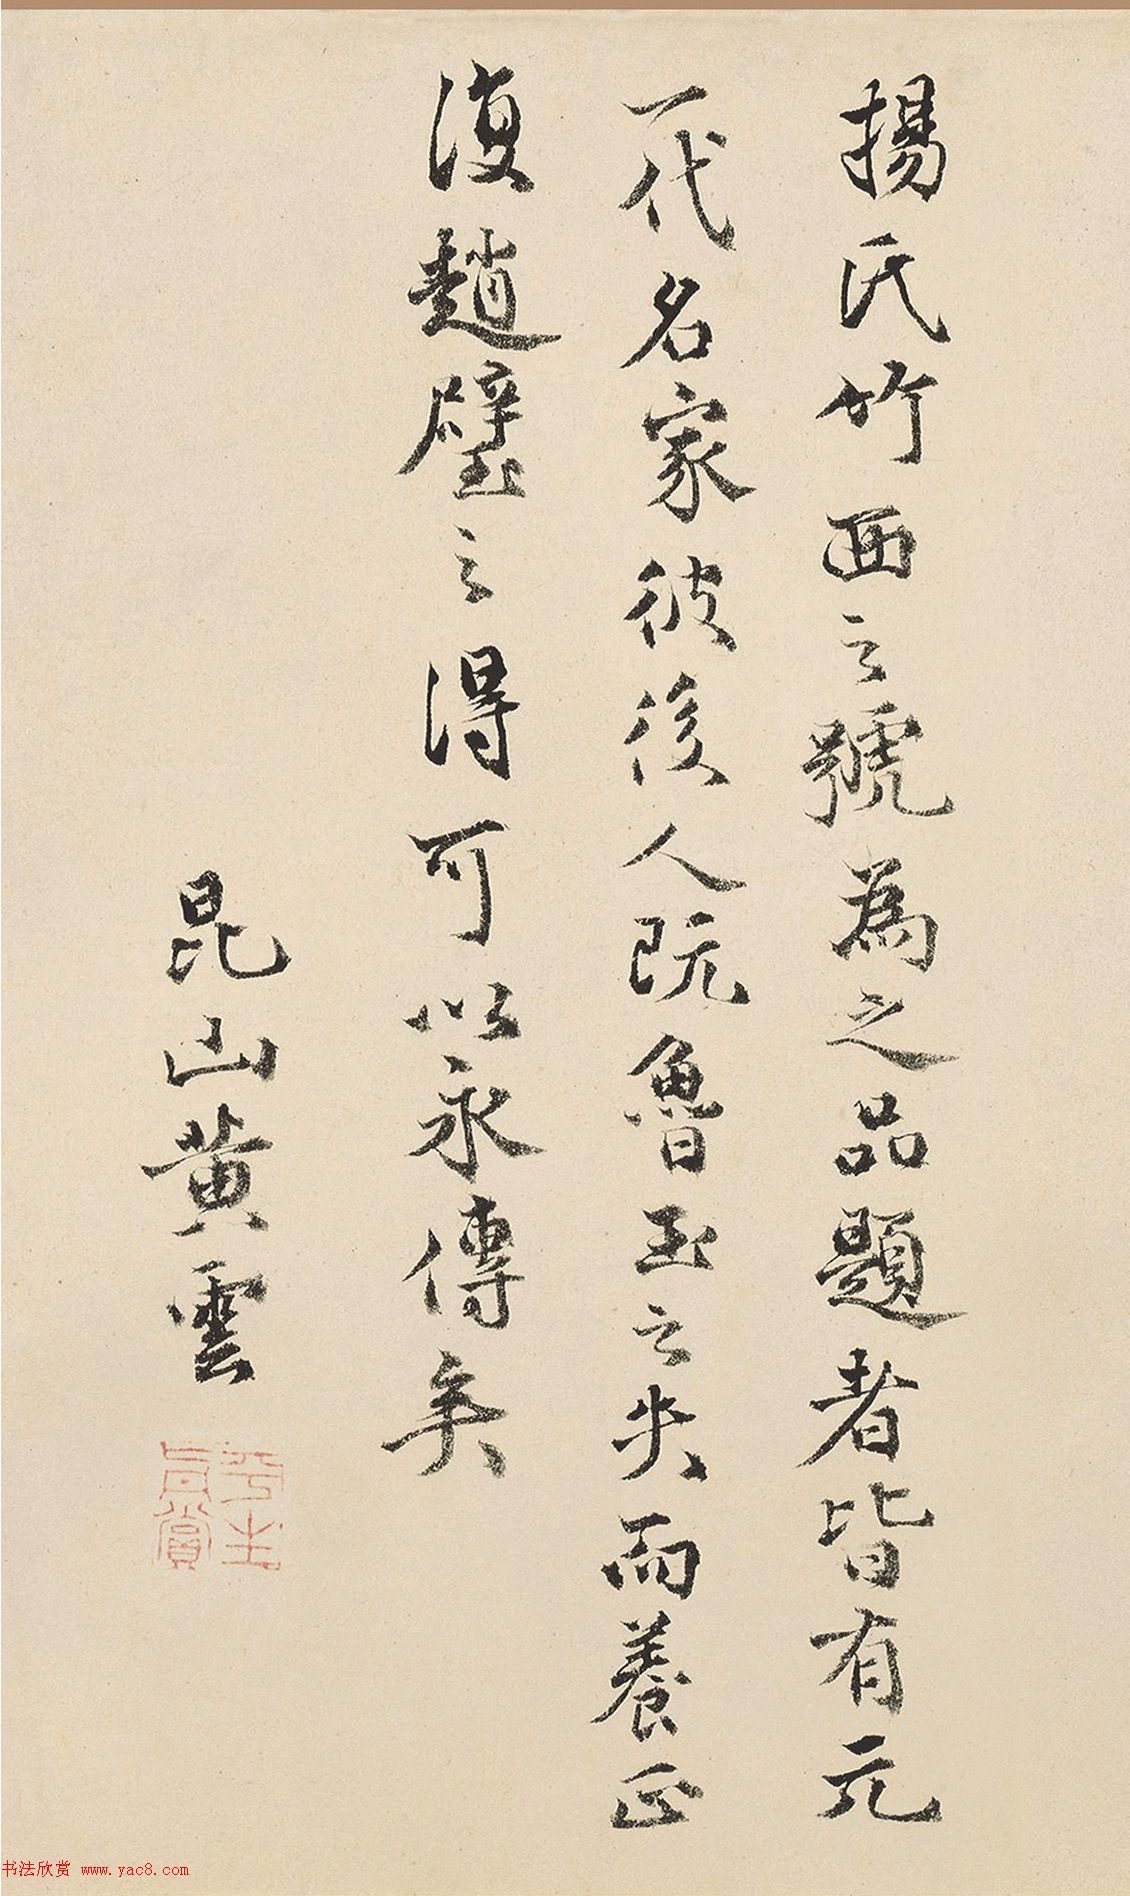 揚氏竹西之號為之品題者皆有元
一代名家彼後人既魯玉之失而養正
復趙璧之得可以永傳矣
昆山黃雲
书法欣赏 www.yac8.com